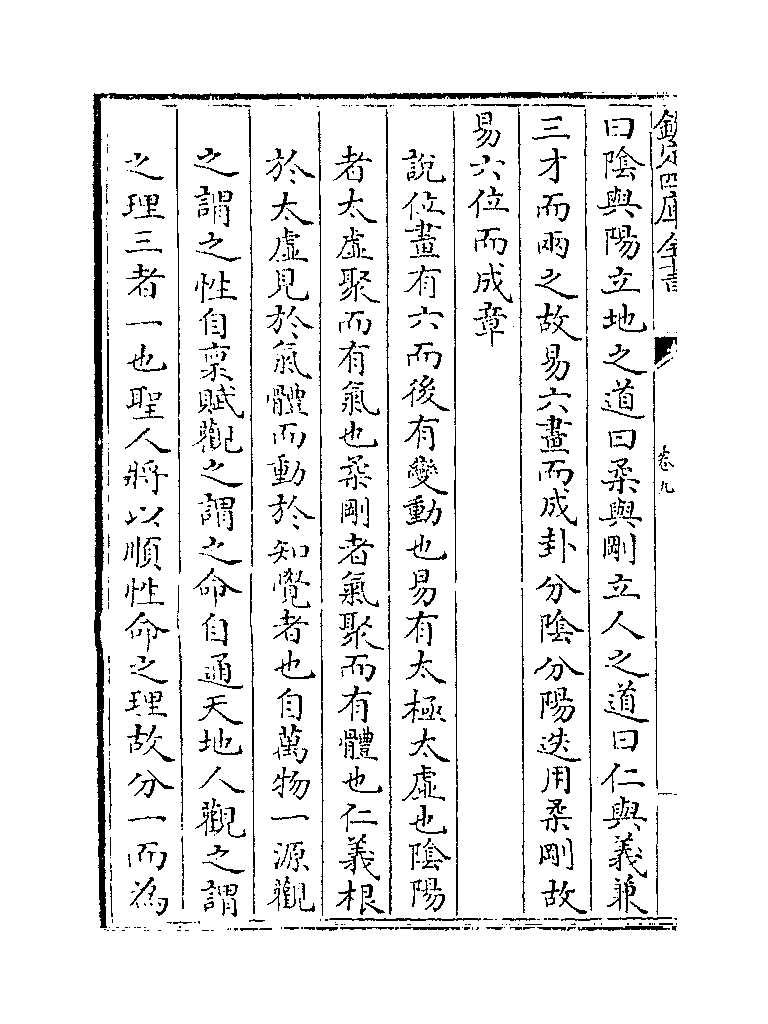 欽定四庫全書
卷九
曰陰與陽立地之道曰柔與剛立人之道曰仁與義兼
三才而兩之故易六畫而成卦分陰分陽迭用柔剛故
易六位而成章
說位畫有六而後有變動也易有太極太虛也陰陽
者太虛聚而有氣也柔剛者氣聚而有體也仁義根
於太虛見於氣體而動於知覺者也自萬物一源觀
之謂之性自禀賦觀之謂之命自通天地人觀之謂
之理三者一也聖人將以順性命之理故分一而為